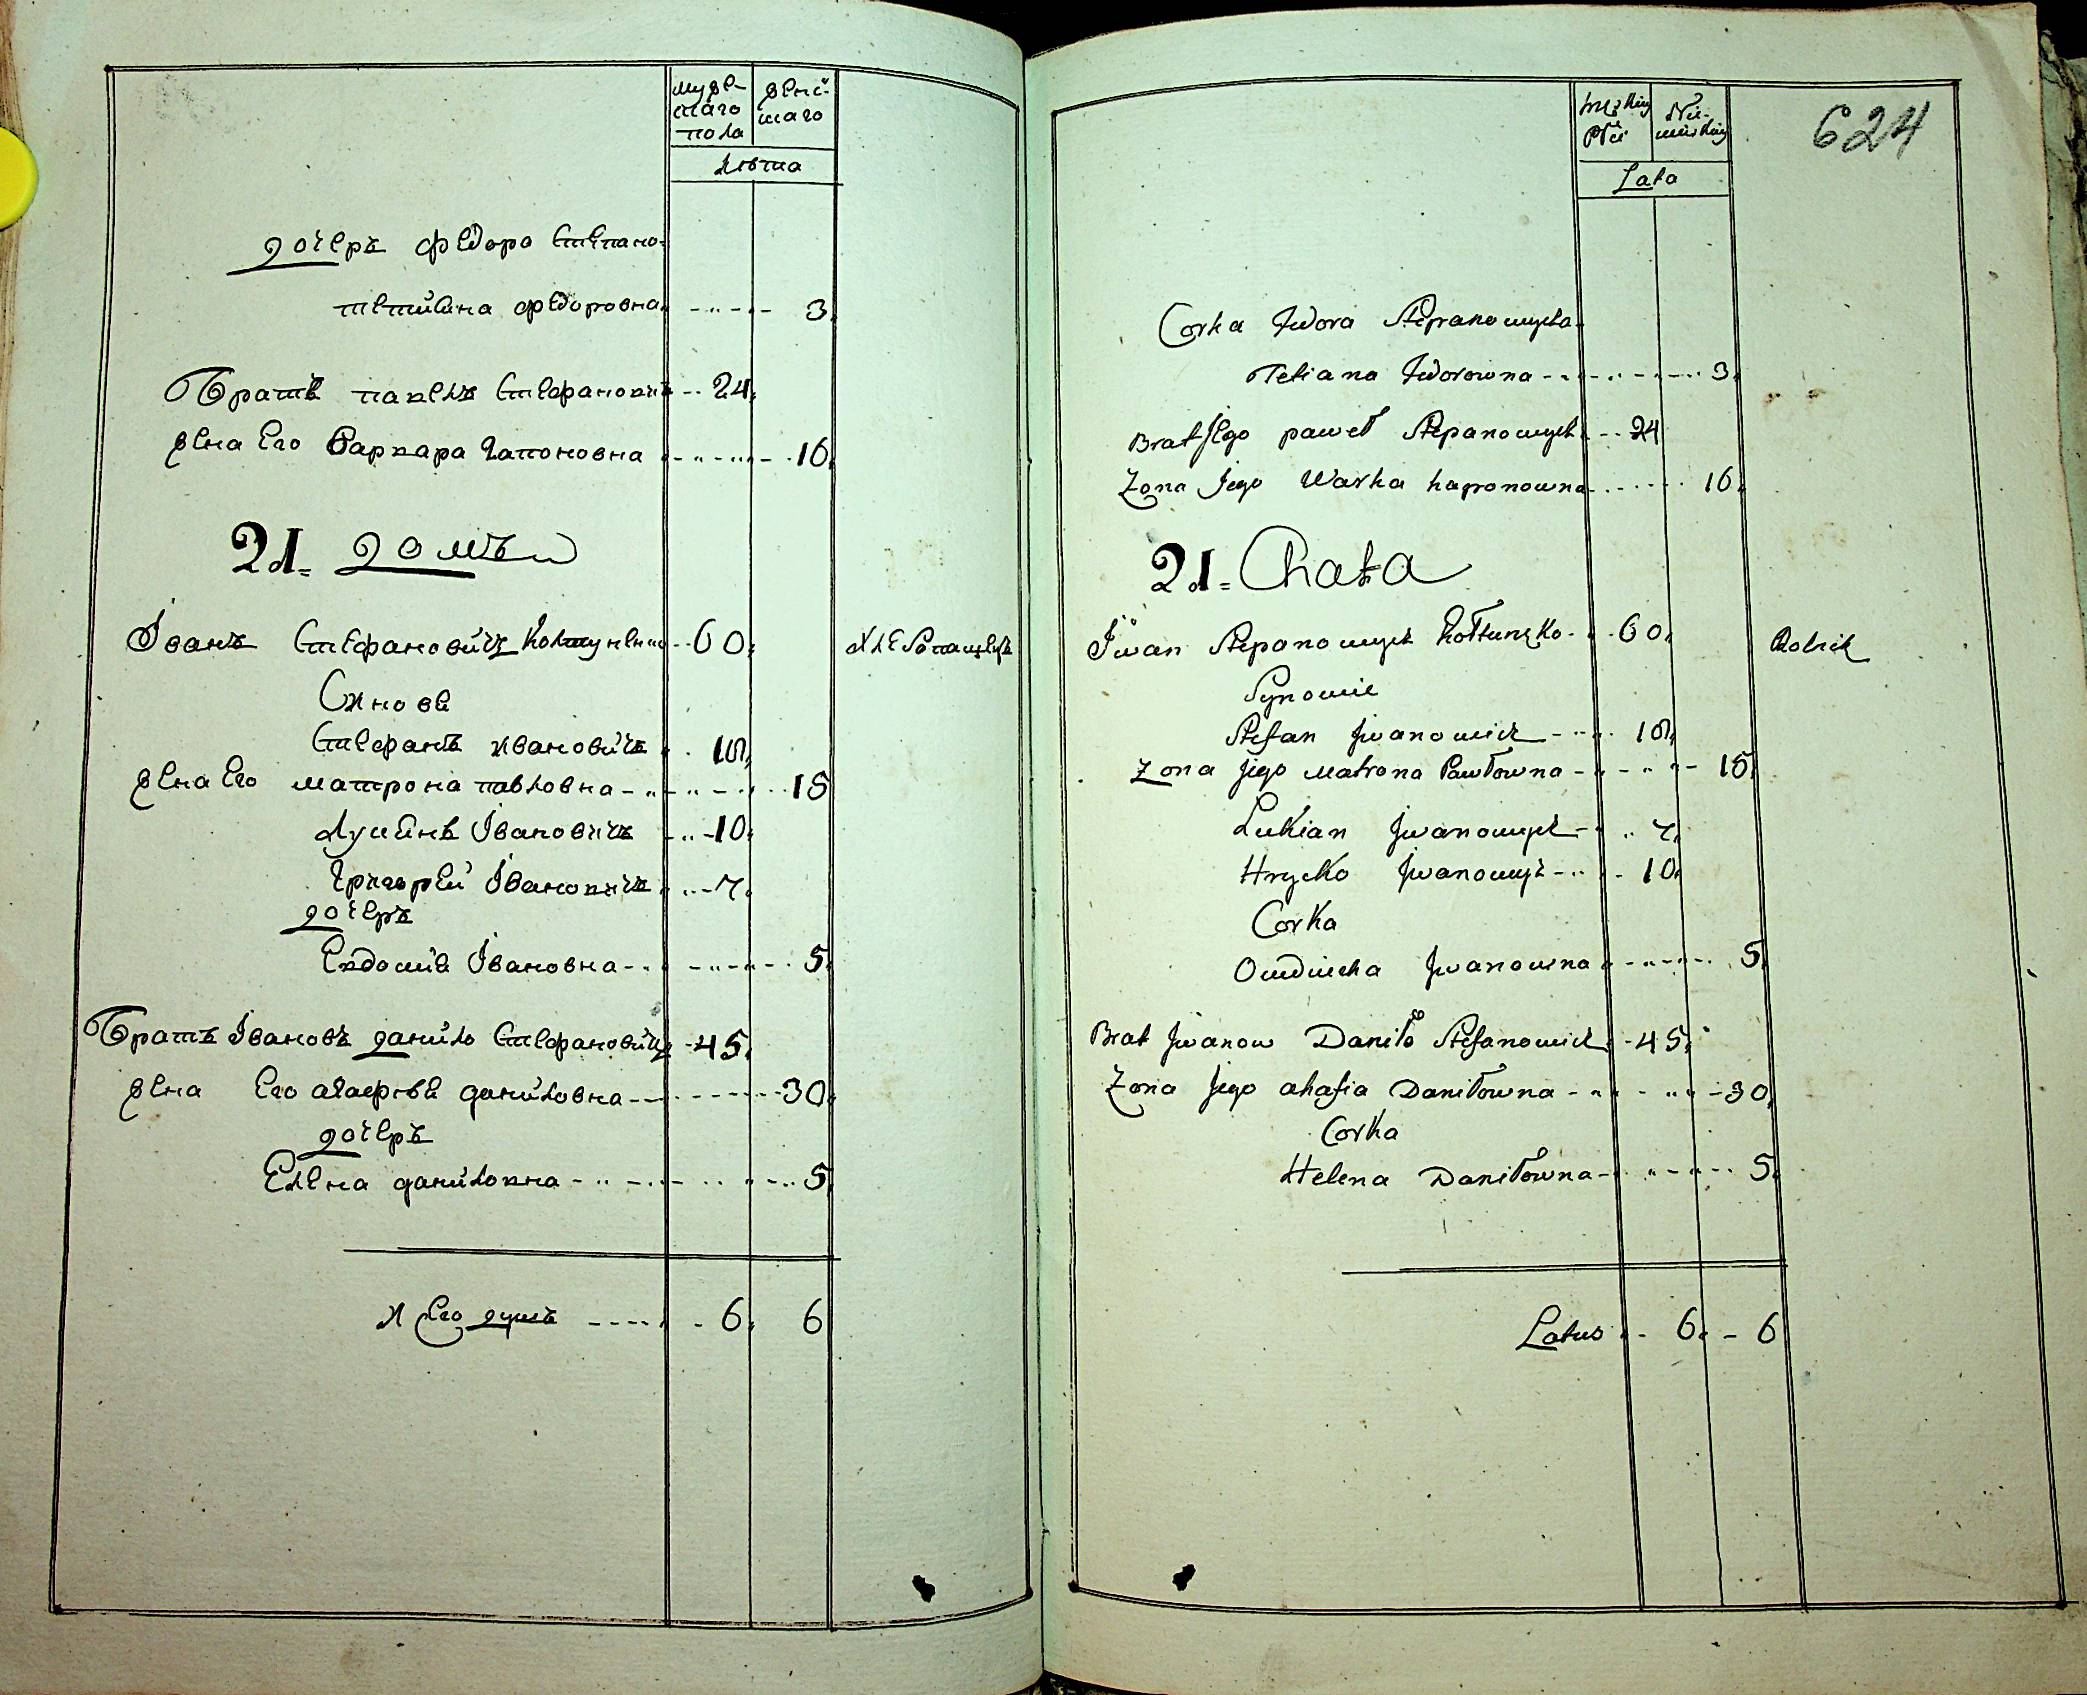 муже-
скаго
пола
женс-
каго
Лѣта
дочеръ федора Степано-
тетияна федоровна 3
Братъ павелъ Стефановичъ 24
жена Его Варвара Гапоновна 16
21 домъ
Іванъ Стефановичъ Колтуненко 60 хлебопашецъ
Синове
Стефанъ ивановичъ 18
жена Его матрона павловна 15
Лукиянъ Івановичъ 10
григорей Івановичъ 7
дочеръ
Евдокия Івановна 5
Братъ Івановъ данило Стефановичъ 45
жена Его агафия даниловна 30
дочеръ
Елена даниловна 5
6 6
624
męzkiey
Płci
Nie-
wieskiey
Lata
Corka Fedora Stepanowycha
Tetiana Fedorowna 3
Brat Jego paweł Stepanowych 24
Zona Jego Warka haponowna 16
21 Chata
Jwan Stepanowych Kołtunenko 60 Rolnik
Synowie
Stefan Jwanowich 18
Zona jego Matrona Pawłowna 15
Lukian Jwanowych 7
Hrycko Jwanowych 10
Corka
Owdiucha Jwanowna 5
Brat Jwanow Daniło Stefanowich 45
Zona Jego ahafia Daniłowna 30
Corka
Helena Daniłowna 5
Latus 6 6